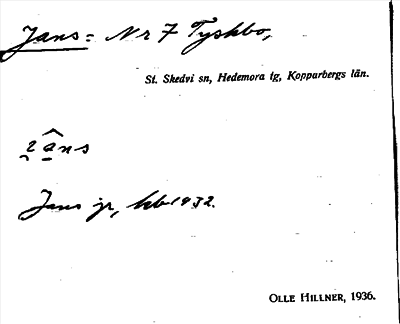 Jans = Nr 7 Tyskbo,
St. Skedvi sn, Hedemora tg, Kopparbergs län.
Jans gr, hb 1932.
OLLE HILLNER, 1936.